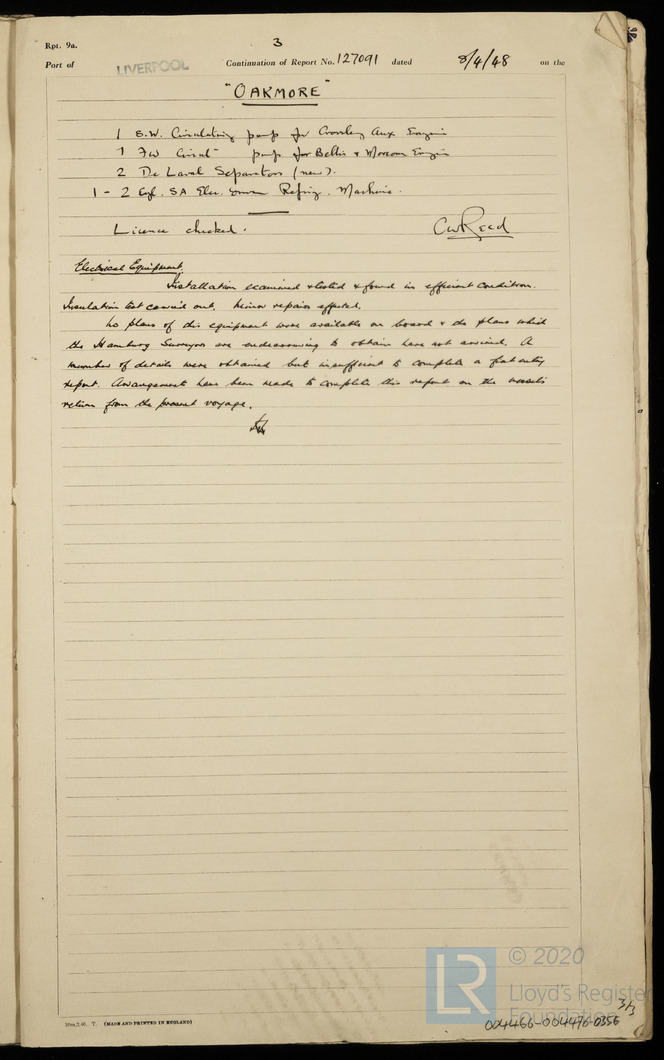 Rpt. 9a.
3
Port of LIVERPOOL Continuation of Report No. 127091 dated 8/4/48 on the
"OAKMORE"
1 S.W. Circulating pump for Crossley Aux Engine
1 FW Circult pump for Bellis & Morcom Engine
2 De Laval Separators (new).
1 - 2 Cyl. SA Elec. driven Refrig. Machine.
Licence checked.
CWReed
Electrical Equipment.
Installation examined & tested & found in efficient condition.
Insulation test carried out. Minor repairs effected.
No plans of this equipment were available on board & the plans which
the Hamburg Surveyors are endeavouring to obtain have not arrived. A
number of details were obtained but insufficient to complete a first entry
report. Arrangements have been made to complete this report on the vessel's
return from the present voyage.
10m,2.46. T. (MADE AND PRINTED IN ENGLAND)
LR
© 2020
Lloyd's Register
Foundation
3/3
004466-004476-0356